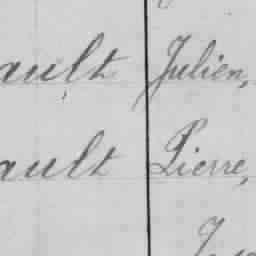 ault Julien,
ault Pierre,